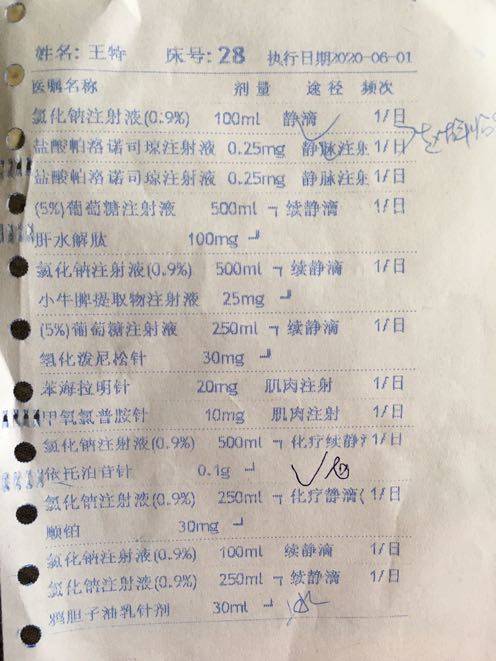 姓名: 王特 床号: 28 执行日期2020-06-01
医嘱名称 剂量 途径 频次
氯化钠注射液(0.9%) 100ml 静滴 1/日
盐酸帕洛诺司琼注射液 0.25mg 静脉注射 1/日
盐酸帕洛诺司琼注射液 0.25mg 静脉注射 1/日
(5%)葡萄糖注射液 500ml ┐ 续静滴 1/日
肝水解肽 100mg ┘
氯化钠注射液(0.9%) 500ml ┐ 续静滴 1/日
小牛脾提取物注射液 25mg ┘
(5%)葡萄糖注射液 250ml ┐ 续静滴 1/日
氢化泼尼松针 30mg ┘
苯海拉明针 20mg 肌肉注射 1/日
甲氧氯普胺针 10mg 肌肉注射 1/日
氯化钠注射液(0.9%) 500ml ┐ 化疗续静 1/日
依托泊苷针 0.1g ┘
氯化钠注射液(0.9%) 250ml ┐ 化疗静滴( 1/日
顺铂 30mg ┘
氯化钠注射液(0.9%) 100ml 续静滴 1/日
氯化钠注射液(0.9%) 250ml ┐ 续静滴 1/日
鸦胆子油乳针剂 30ml ┘